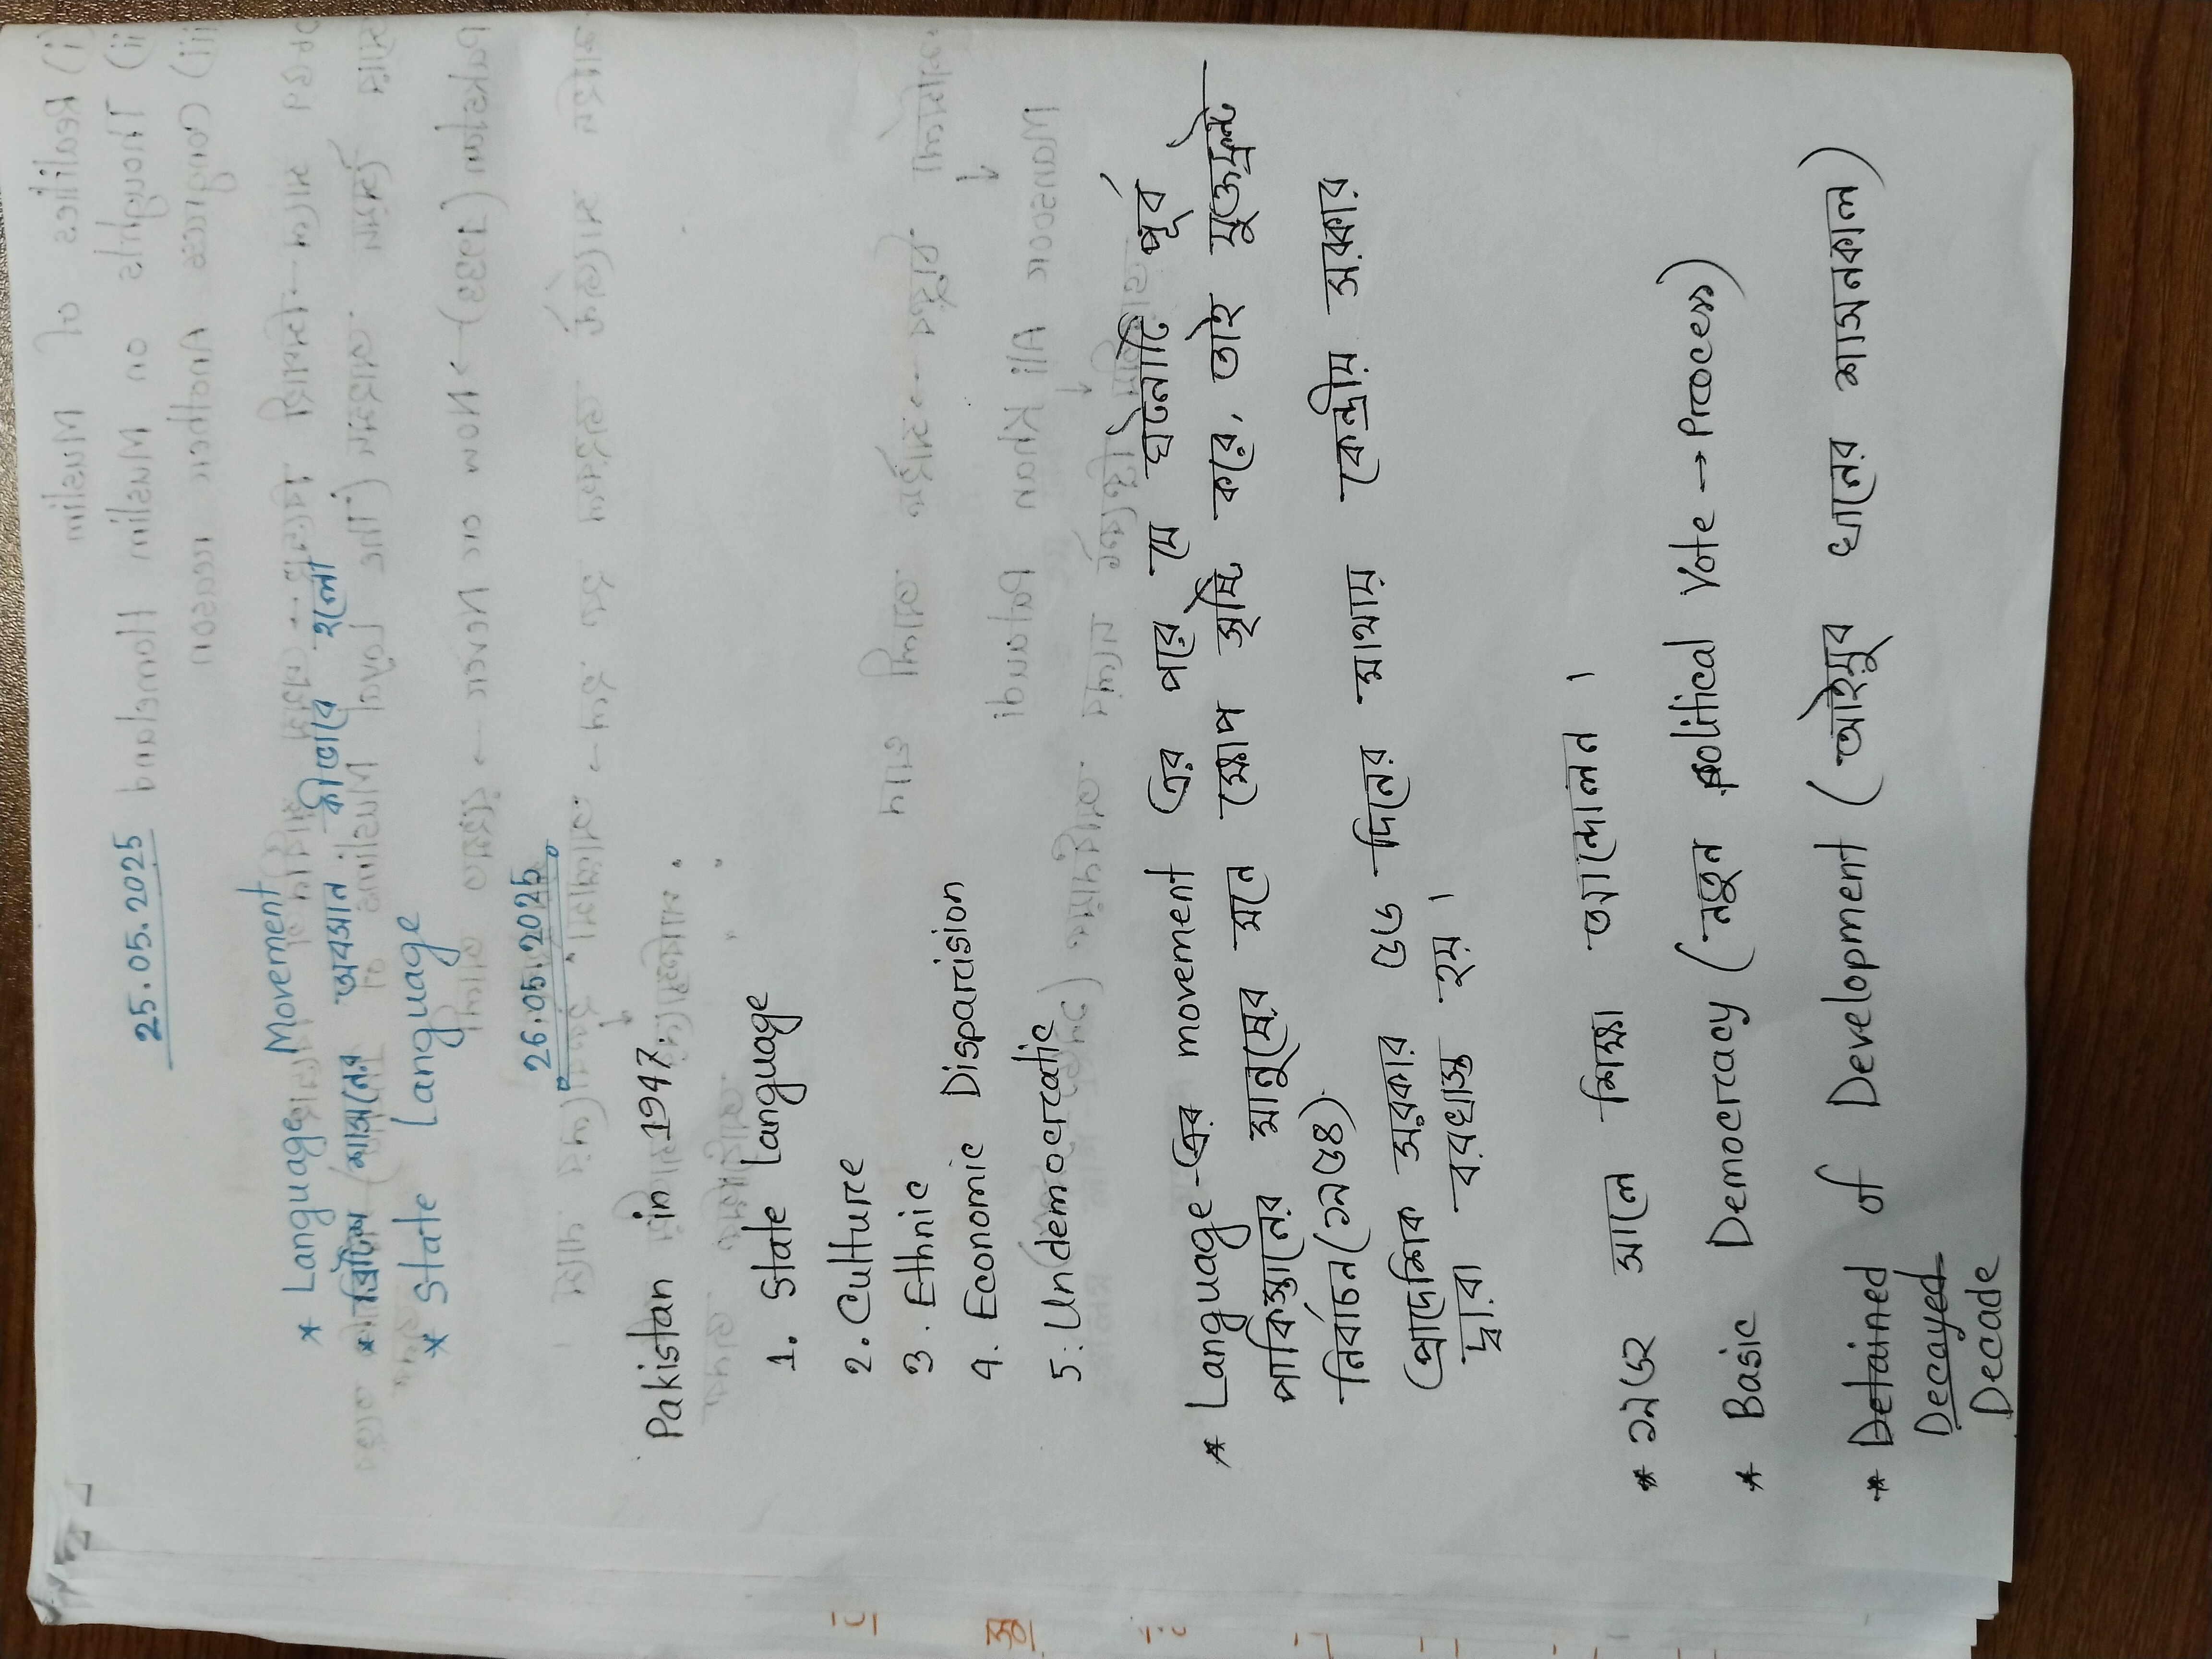 25.05.2025
* Language Movement
* ব্রিটিশ শাসনের অবসান কীভাবে হলো
* State Language
26.05.2025
Pakistan in 1947.
1. State language
2. Culture
3. Ethnic
4. Economic Disparision
5. Undemocratic
* Language-এর movement এর পরে যে ঘটনাটি পূর্ব
পাকিস্তানের মানুষের মনে ক্ষোপ সৃষ্টি করে, তাই যুক্তফ্রন্ট
নির্বাচন (১৯৫৪).
প্রাদেশিক সরকার ৫৬ দিনের মাথায় কেন্দ্রীয় সরকার
দ্বারা বরখাস্ত হয়।
* ১৯৬২ সালে শিক্ষা আন্দোলন।
* Basic Democracy (নতুন political Vote → Process)
* Detained of Development (আইয়ুব খানের শাসনকাল)
Decayed
Decade